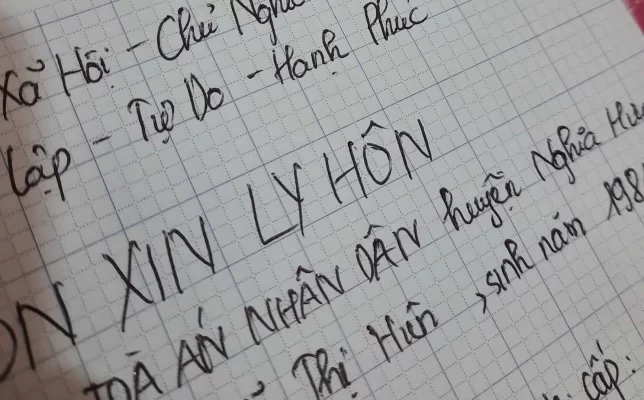 Xã Hội - Chủ Nghĩa
Lập - Tự Do - Hạnh Phúc
ĐN XIN LY HÔN
TOÀ ÁN NHÂN DÂN huyện Nghĩa Hưn
Thị Hiên , sinh năm 198
cấp.